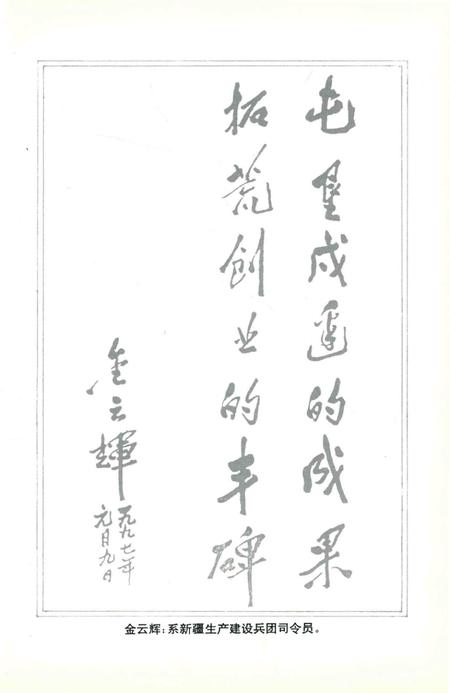 屯垦戍边的成果
拓荒创业的丰碑
金云辉
一九九七年
元月九日
金云辉：系新疆生产建设兵团司令员。